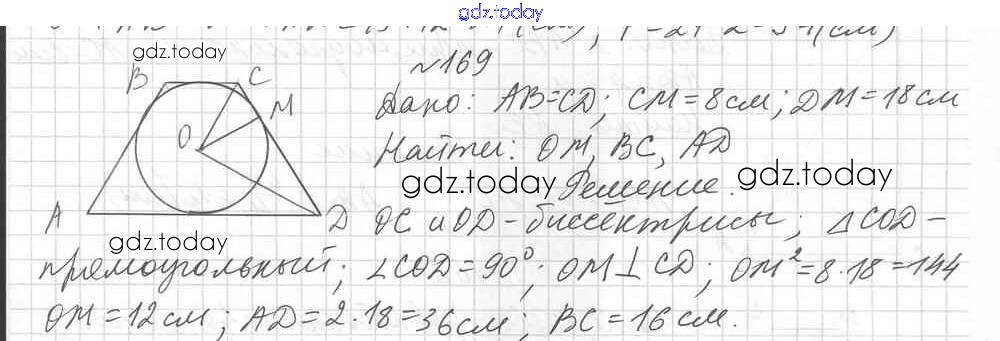 gdz.today
gdz.today
№169
B C M O A D
Дано: AB=CD; CM=8см; DM=18см
Найти: OM, BC, AD
gdz.today gdz.today
Решение.
OC и OD – биссектрисы; △COD –
gdz.today
прямоугольный; ∠COD=90°; OM⊥CD; OM²=8·18=144
OM=12см; AD=2·18=36см; BC=16см.